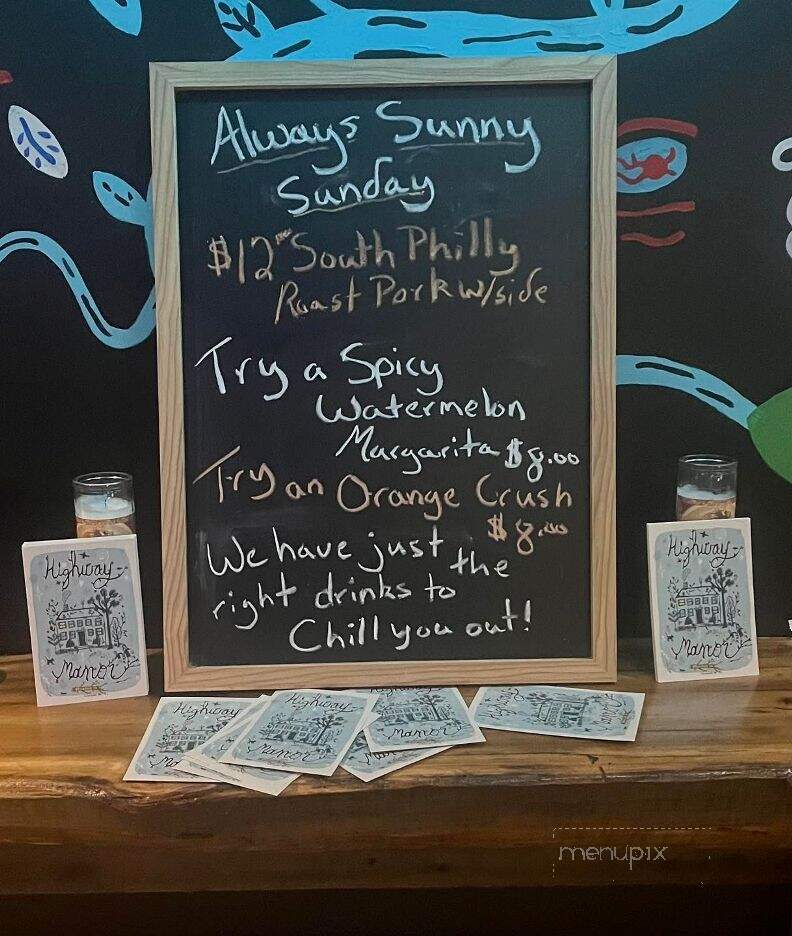 Always Sunny
Sunday
$12 South Philly
Roast Pork w/side
Try a Spicy
Watermelon
Margarita $8.00
Try an Orange Crush
$8.00
We have just the
right drinks to
Chill you out!
Highway
Manor
Highway
Manor
Highway
Highway
Manor
Highway
Manor
Highway
Manor
menupix